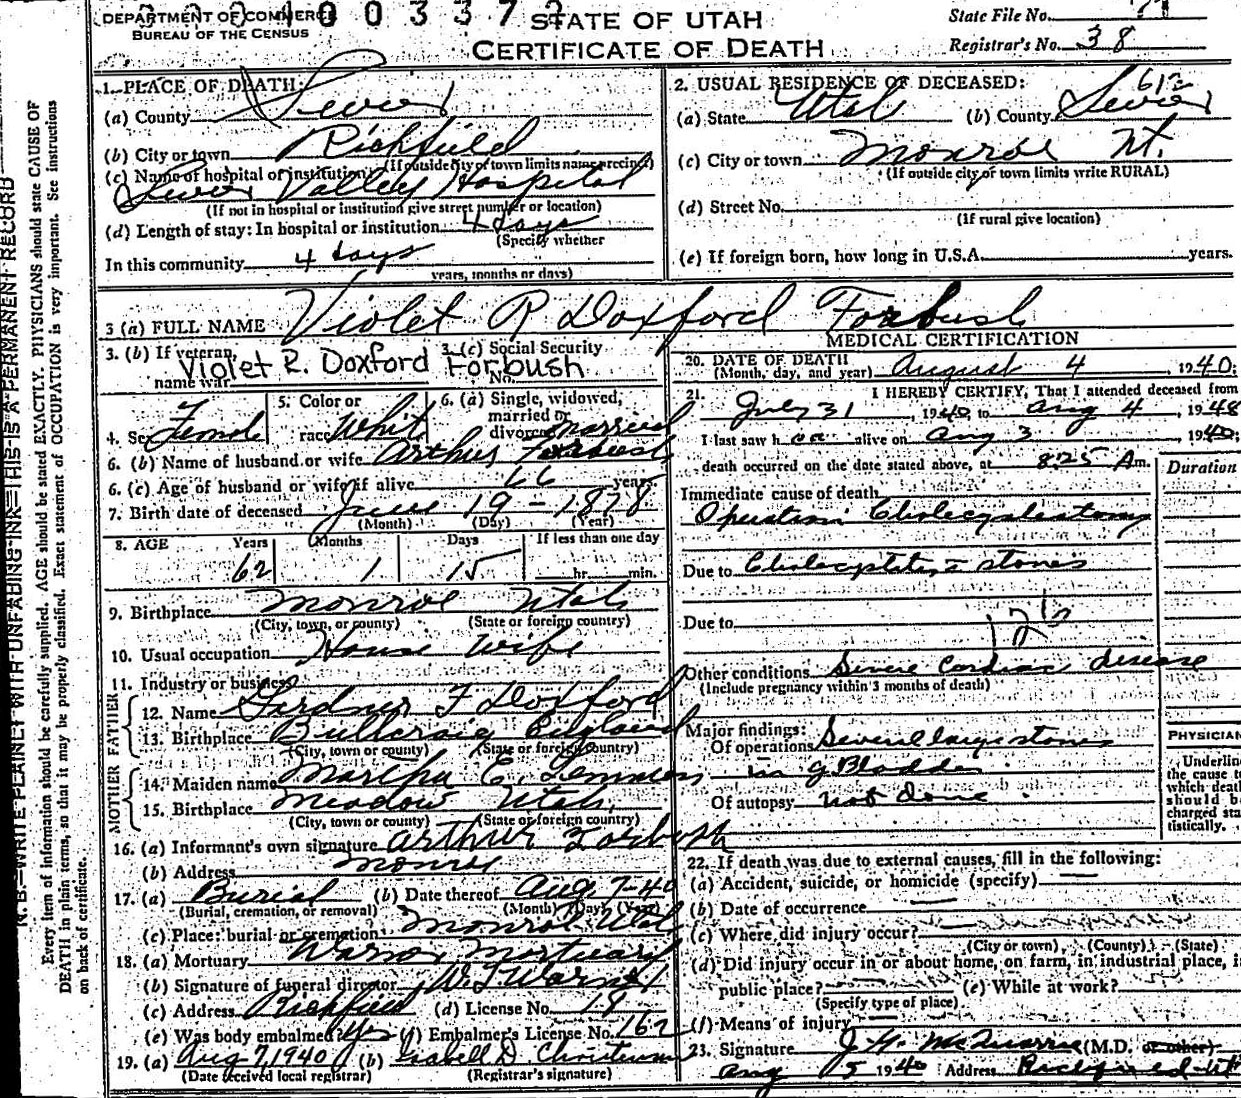 DEPARTMENT OF COMMERCE
BUREAU OF THE CENSUS
0 0 3 3 7
STATE OF UTAH
CERTIFICATE OF DEATH
State File No.
Registrar's No. 38
1. PLACE OF DEATH:
(a) County Sevier
(b) City or town Richfield
(If outside city or town limits name precinct)
(c) Name of hospital or institution:
Sevier Valley Hospital
(If not in hospital or institution give street number or location)
(d) Length of stay: In hospital or institution 4 days
(Specify whether
In this community 4 days
years, months or days)
2. USUAL RESIDENCE OF DECEASED:
(a) State Utah (b) County Sevier
(c) City or town Monroe Ut.
(If outside city or town limits write RURAL)
(d) Street No.
(If rural give location)
(e) If foreign born, how long in U.S.A. years.
3 (a) FULL NAME Violet R Doxford Forbush
3. (b) If veteran, name war
3. (c) Social Security No.
Violet R. Doxford Forbush
4. Sex Female
5. Color or race White
6. (a) Single, widowed, married or divorced married
6. (b) Name of husband or wife Arthur Forbush
6. (c) Age of husband or wife if alive 66 years
7. Birth date of deceased June 19 - 1878
(Month) (Day) (Year)
8. AGE Years Months Days If less than one day
62 1 15 hr. min.
9. Birthplace Monroe Utah
(City, town, or county) (State or foreign country)
10. Usual occupation House Wife
11. Industry or business
FATHER
12. Name F Doxford
13. Birthplace England
(City, town or county) (State or foreign country)
MOTHER
14. Maiden name Martha E.
15. Birthplace Meadow Utah
(City, town or county) (State or foreign country)
16. (a) Informant's own signature Arthur Forbush
(b) Address Monroe
17. (a) Burial (b) Date thereof Aug 7-40
(Burial, cremation, or removal) (Month) (Day) (Year)
(c) Place: burial or cremation Monroe Utah
18. (a) Mortuary Mortuary
(b) Signature of funeral director
(c) Address Richfield (d) License No. 18
(e) Was body embalmed? Yes (f) Embalmer's License No. 162
19. (a) Aug 7, 1940 (b)
(Date received local registrar) (Registrar's signature)
MEDICAL CERTIFICATION
20. DATE OF DEATH
(Month, day, and year) August 4 1940;
21. I HEREBY CERTIFY, That I attended deceased from
July 31, 1940 to Aug 4, 1948
I last saw h er alive on Aug 3 1940;
death occurred on the date stated above, at 8:25 A m.
Duration
Immediate cause of death
Operation Cholecystectomy
Due to stones
Due to
Other conditions Severe Cardiac disease
(Include pregnancy within 3 months of death)
Major findings:
Of operations Several large stones
in g Bladder
Of autopsy not done
PHYSICIAN
Underline
the cause to
which death
should be
charged sta-
tistically.
22. If death was due to external causes, fill in the following:
(a) Accident, suicide, or homicide (specify)
(b) Date of occurrence
(c) Where did injury occur?
(City or town) (County) (State)
(d) Did injury occur in or about home, on farm, in industrial place, i
public place? (e) While at work?
(Specify type of place)
(f) Means of injury
23. Signature (M.D. or other)
Aug 5 1940 Address Richfield Ut
N. B.—WRITE PLAINLY WITH UNFADING INK—THIS IS A PERMANENT RECORD
Every item of information should be carefully supplied. AGE should be stated EXACTLY. PHYSICIANS should state CAUSE OF
DEATH in plain terms, so that it may be properly classified. Exact statement of OCCUPATION is very important. See instructions
on back of certificate.